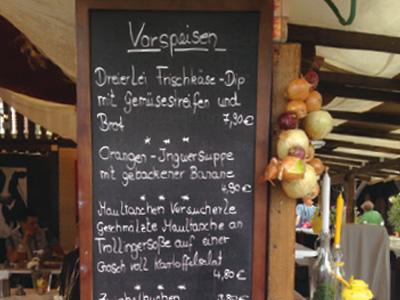 Vorspeisen
Dreierlei Frischkäse-Dip
mit Gemüsestreifen und
Brot 7,90€
* * *
Orangen-Ingwersuppe
mit gebackener Banane
4,90€
* * *
Maultaschen Versucherle
Geschmälzte Maultasche an
Trollingersoße auf einer
Gosch voll Kartoffelsalat
4,80€
* * *
Zwiebelkuchen 3,80€